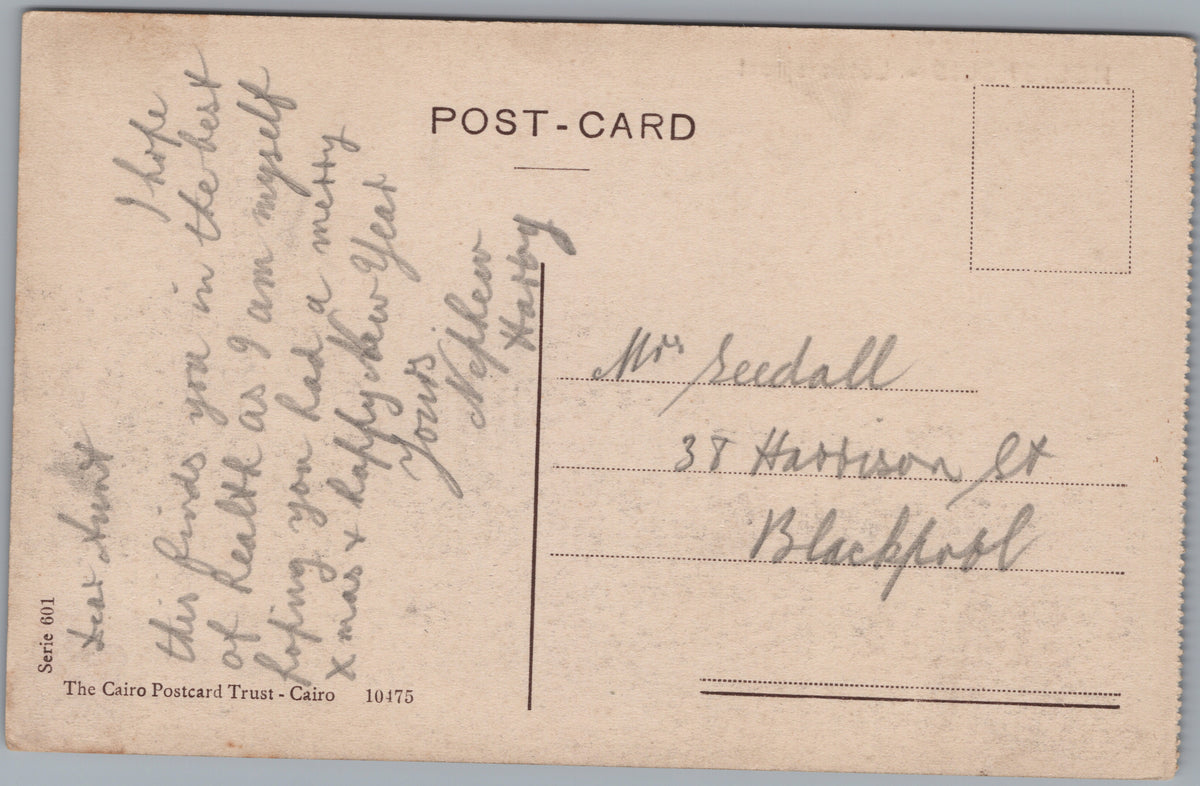 POST-CARD
Dear Aunt
I hope
this finds you in the best
of health as I am myself
hoping you had a merry
Xmas & happy New Year
Yours
Nephew
Harry
Mrs Seedall
38 Harrison St
Blackpool
Serie 601
The Cairo Postcard Trust - Cairo 10475